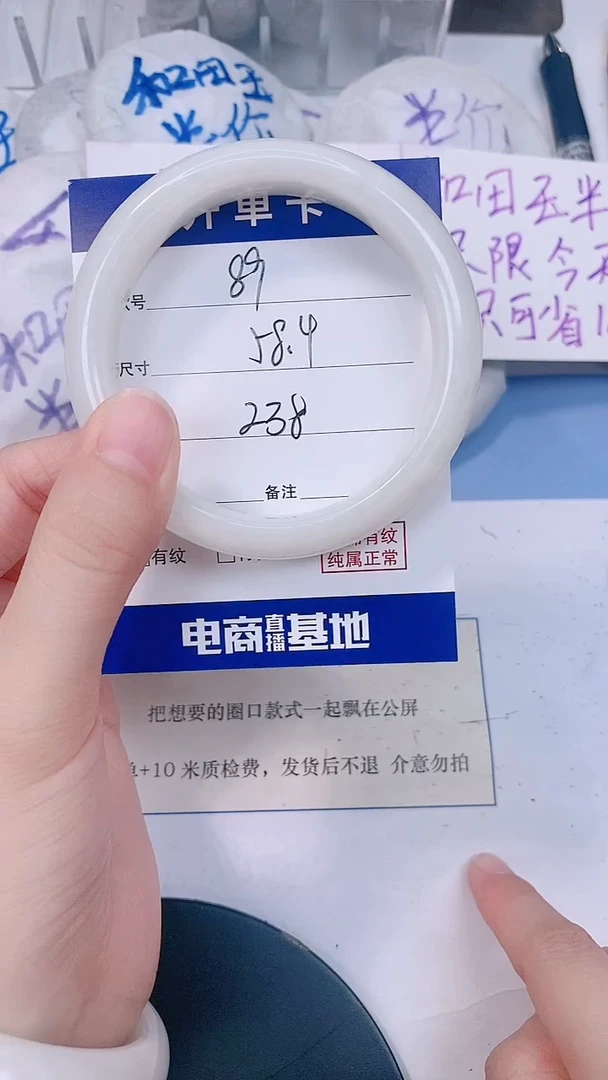 和田玉
半价
半价
和田玉半
只限今天
只可省1
开单卡
款号 89
尺寸 58.4
238
备注
有纹
有纹
纯属正常
电商直播基地
把想要的圈口款式一起飘在公屏
单+10米质检费，发货后不退 介意勿拍